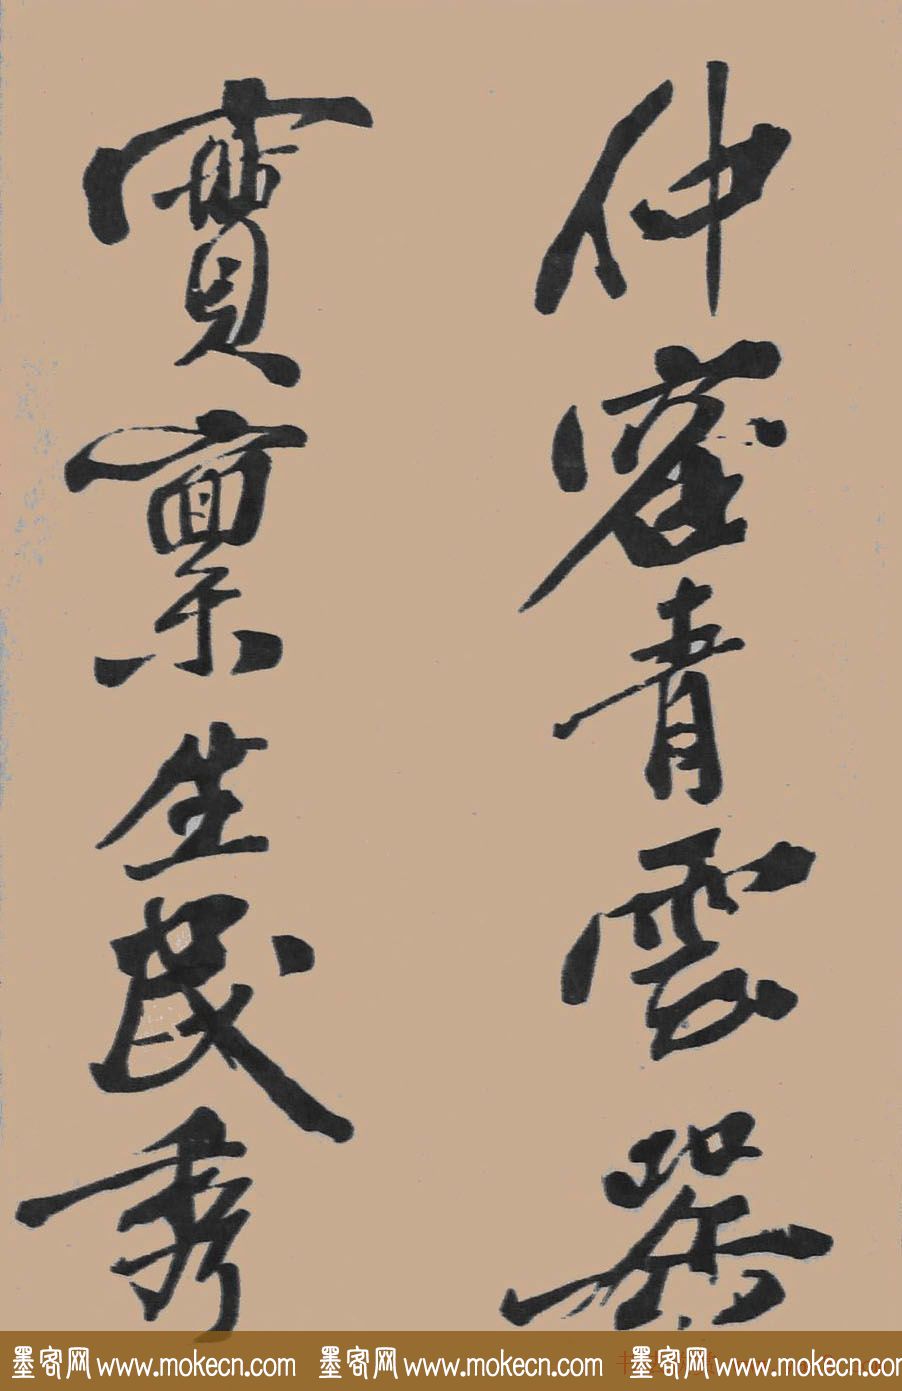 仲容青雲器
實稟生民秀
墨客网 www.mokecn.com 墨客网 www.mokecn.com 墨客网 www.mokecn.com